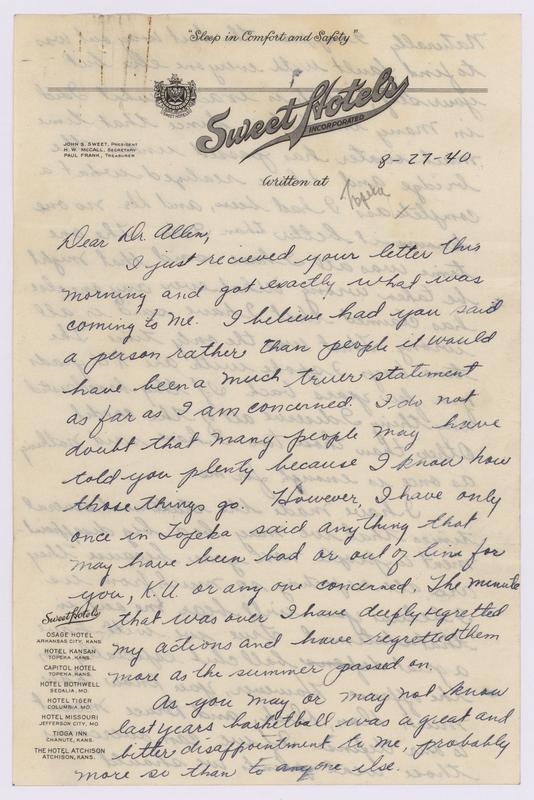 "Sleep in Comfort and Safety"
SWEET HOTELS
Sweet Hotels
INCORPORATED
JOHN S. SWEET, PRESIDENT
H. W. MCCALL, SECRETARY
PAUL FRANK, TREASURER
8-27-40
Written at Topeka
Dear Dr. Allen,
I just recieved your letter this
morning and got exactly what was
coming to me. I believe had you said
a person rather than people it would
have been a much truer statement
as far as I am concerned. I do not
doubt that many people may have
told you plenty because I know how
those things go. However, I have only
once in Topeka said anything that
may have been bad or out of line for
you, K.U. or any one concerned. The minute
that was over I have deeply regretted
my actions and have regretted them
more as the summer passed on.
As you may or may not know
last years basketball was a great and
bitter disappointment to me, probably
more so than to anyone else.
Sweet Hotels
OSAGE HOTEL
ARKANSAS CITY, KANS.
HOTEL KANSAN
TOPEKA, KANS.
CAPITOL HOTEL
TOPEKA, KANS.
HOTEL BOTHWELL
SEDALIA, MO.
HOTEL TIGER
COLUMBIA, MO.
HOTEL MISSOURI
JEFFERSON CITY, MO.
TIOGA INN
CHANUTE, KANS.
THE HOTEL ATCHISON
ATCHISON, KANS.